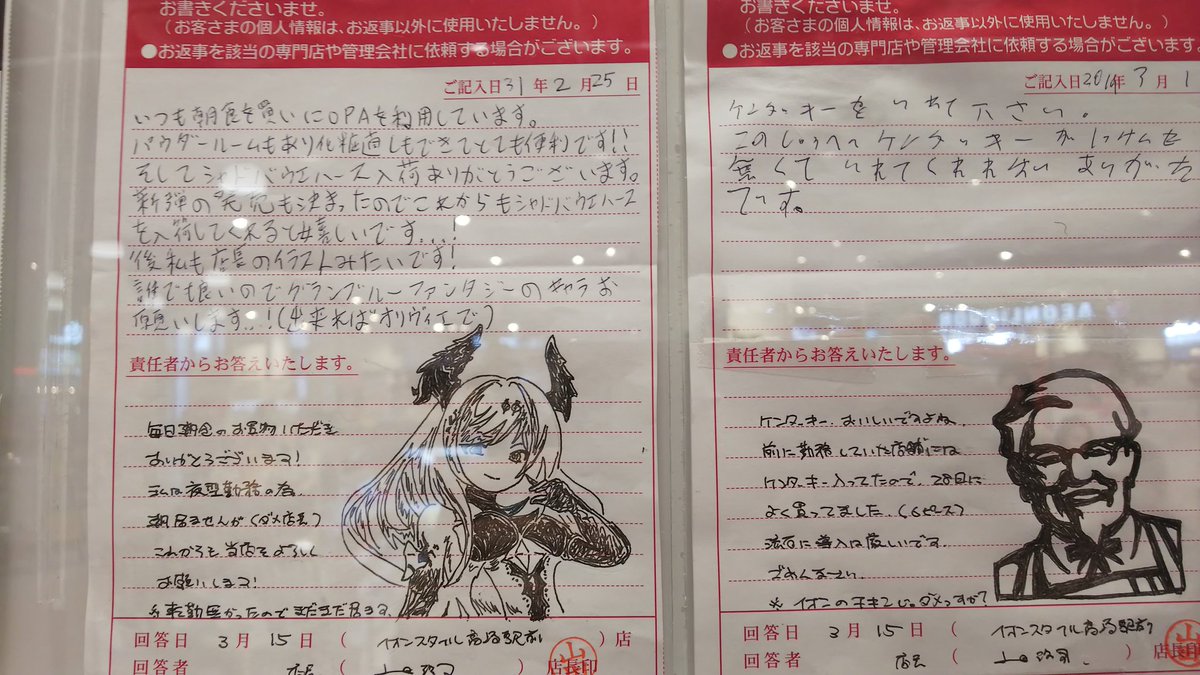 お書きくださいませ。
(お客さまの個人情報は、お返事以外に使用いたしません。)
●お返事を該当の専門店や管理会社に依頼する場合がございます。
ご記入日31年2月25日
いつも朝食を買いにOPAを利用しています。
パウダールームもあり化粧直しもできてとても便利です!!
そしてシャドバウエハース入荷ありがとうございます。
新弾の発売も決まったのでこれからもシャドバウエハース
を入荷してくれると嬉しいです...!
後私も店長のイラストみたいです!
誰でも良いのでグランブルーファンタジーのキャラお
願いします..!(出来ればオリヴィエで)
責任者からお答えいたします。
毎日朝食のお買物いただき
ありがとうございます!
私は夜型勤務の為
朝居ませんが(ダメ店長)
これからも当店をよろしく
お願いします!
※転勤無かったのでまだまだ居ます。
回答日 3月15日(イオンスタイル高崎駅前)店
回答者 店長(
店長印
お書きくださいませ。
(お客さまの個人情報は、お返事以外に使用いたしません。)
●お返事を該当の専門店や管理会社に依頼する場合がございます。
ご記入日2019年3月1
ケンタッキーをいれて下さい。
ケンタッキーが
無くていれてくれればありがた
いです。
責任者からお答えいたします。
ケンタッキーおいしいですよね。
前に勤務していた店舗には
ケンタッキー入ってたので、28日に
よく買ってました。(6ピース)
流石に導入は厳しいです。
ごめんなさい。
※イオンのチキンじゃダメっすか?
回答日 3月15日(イオンスタイル高崎駅前
回答者 店長(
店長印